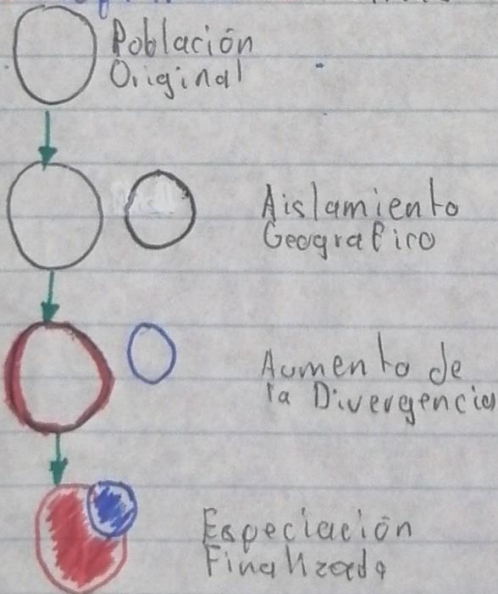 Población
Original
Aislamiento
Geografico
Aumento de
la Divergencia
Especiación
Finalizada